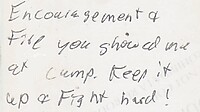 Encouragement &
Fire you showed me
at Camp. Keep it
up & Fight hard!